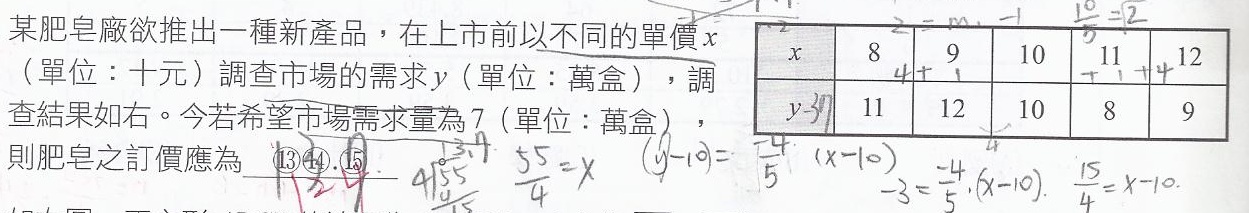 某肥皂廠欲推出一種新產品，在上市前以不同的單價x
（單位：十元）調查市場的需求y（單位：萬盒），調
查結果如右。今若希望市場需求量為7（單位：萬盒），
則肥皂之訂價應為 ⑬⑭.⑮
x 8 9 10 11 12
y 11 12 10 8 9
4+1 +1+4
10/5=√2
13.7
4√55
55/4=x
(y-10)=-4/5 (x-10)
-3=-4/5.(x-10).
15/4=x-10.